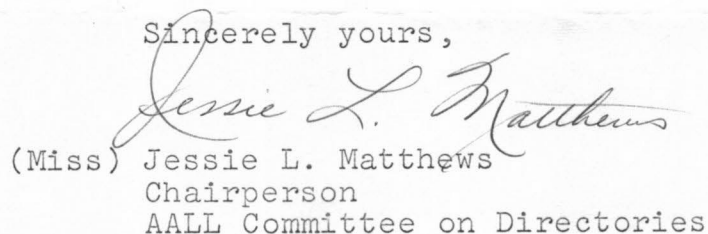 Sincerely yours,
Jessie L. Matthews
(Miss) Jessie L. Matthews
Chairperson
AALL Committee on Directories